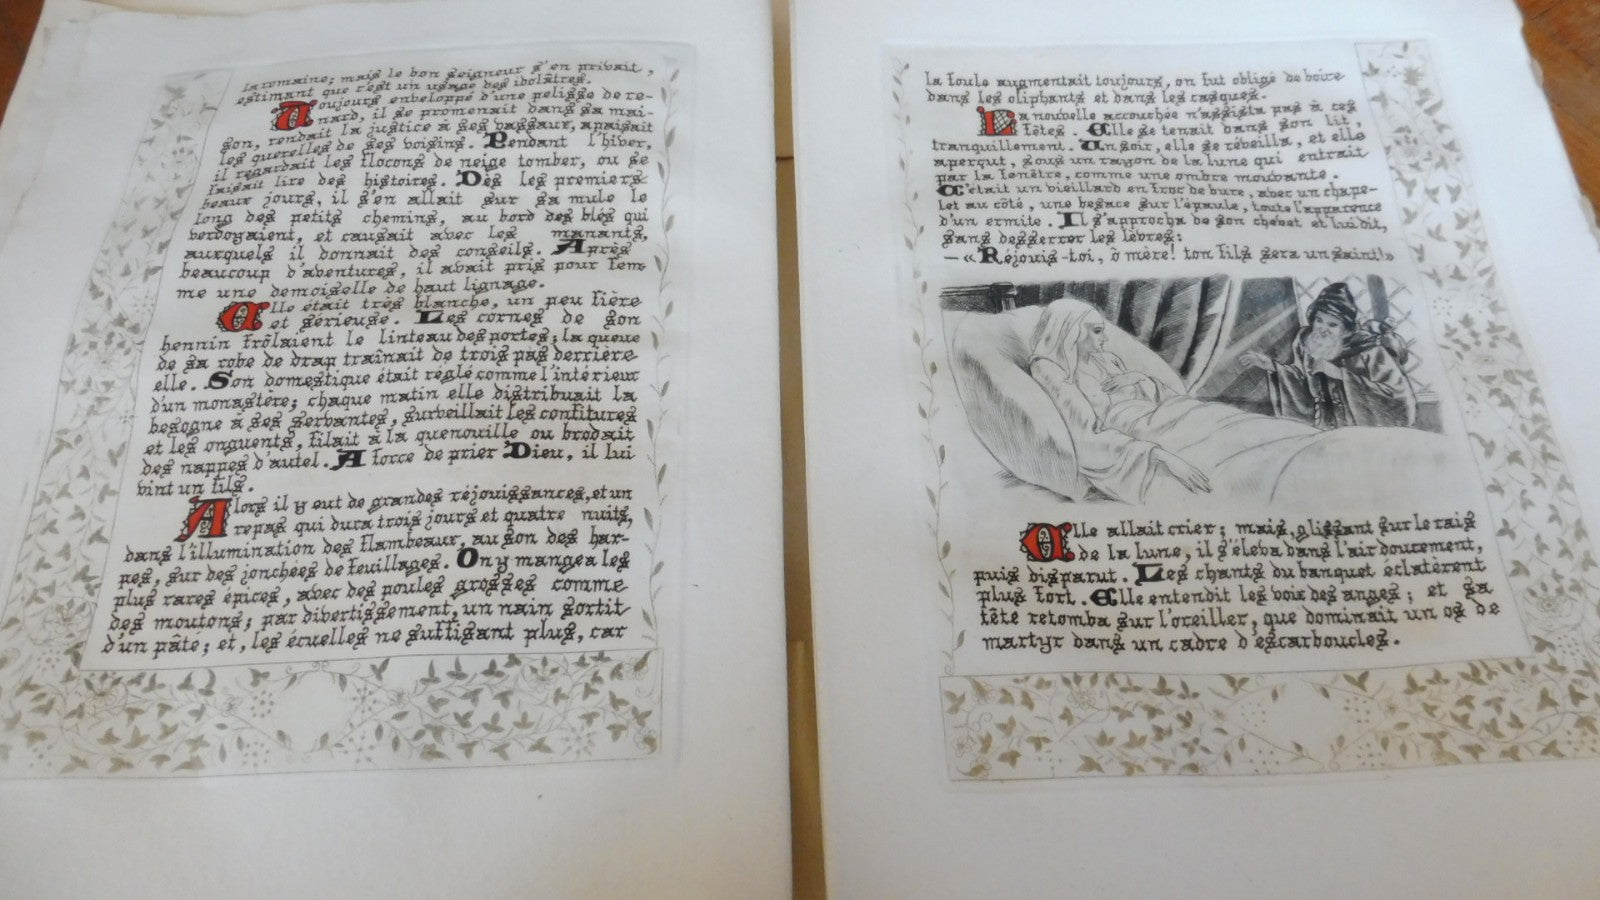 la romaine; mais le bon seigneur s'en privait,
estimant que c'est un usage des idolâtres.
Toujours enveloppé d'une pelisse de re-
nard, il se promenait dans sa mai-
son, rendait la justice à ses vassaux, apaisait
les querelles de ses voisins. Pendant l'hiver,
il regardait les flocons de neige tomber, ou se
faisait lire des histoires. Dès les premiers
beaux jours, il s'en allait sur sa mule le
long des petits chemins, au bord des blés qui
verdoyaient, et causait avec les manants,
auxquels il donnait des conseils. Après
beaucoup d'aventures, il avait pris pour fem-
me une demoiselle de haut lignage.
Elle était très blanche, un peu fière
et sérieuse. Les cornes de son
hennin frôlaient le linteau des portes; la queue
de sa robe de drap traînait de trois pas derrière
elle. Son domestique était réglé comme l'intérieur
d'un monastère; chaque matin elle distribuait la
besogne à ses servantes, surveillait les confitures
et les onguents, filait à la quenouille ou brodait
des nappes d'autel. A force de prier Dieu, il lui
vint un fils.
Alors il y eut de grandes réjouissances, et un
repas qui dura trois jours et quatre nuits,
dans l'illumination des flambeaux, au son des har-
pes, sur des jonchées de feuillages. On y mangea les
plus rares épices, avec des poules grosses comme
des moutons; par divertissement, un nain sortit
d'un pâté; et, les écuelles ne suffisant plus, car
la foule augmentait toujours, on fut obligé de boire
dans les oliphants et dans les casques.
La nouvelle accouchée n'assista pas à ces
fêtes. Elle se tenait dans son lit,
tranquillement. Un soir, elle se réveilla, et elle
aperçut, sous un rayon de la lune qui entrait
par la fenêtre, comme une ombre mouvante.
C'était un vieillard en froc de bure, avec un chape-
let au côté, une besace sur l'épaule, toute l'apparence
d'un ermite. Il s'approcha de son chevet et lui dit,
sans desserrer les lèvres:
— « Réjouis-toi, ô mère! ton fils sera un saint! »
Elle allait crier; mais, glissant sur le rais
de la lune, il s'éleva dans l'air doucement,
puis disparut. Les chants du banquet éclatèrent
plus fort. Elle entendit les voix des anges; et sa
tête retomba sur l'oreiller, que dominait un os de
martyr dans un cadre d'escarboucles.